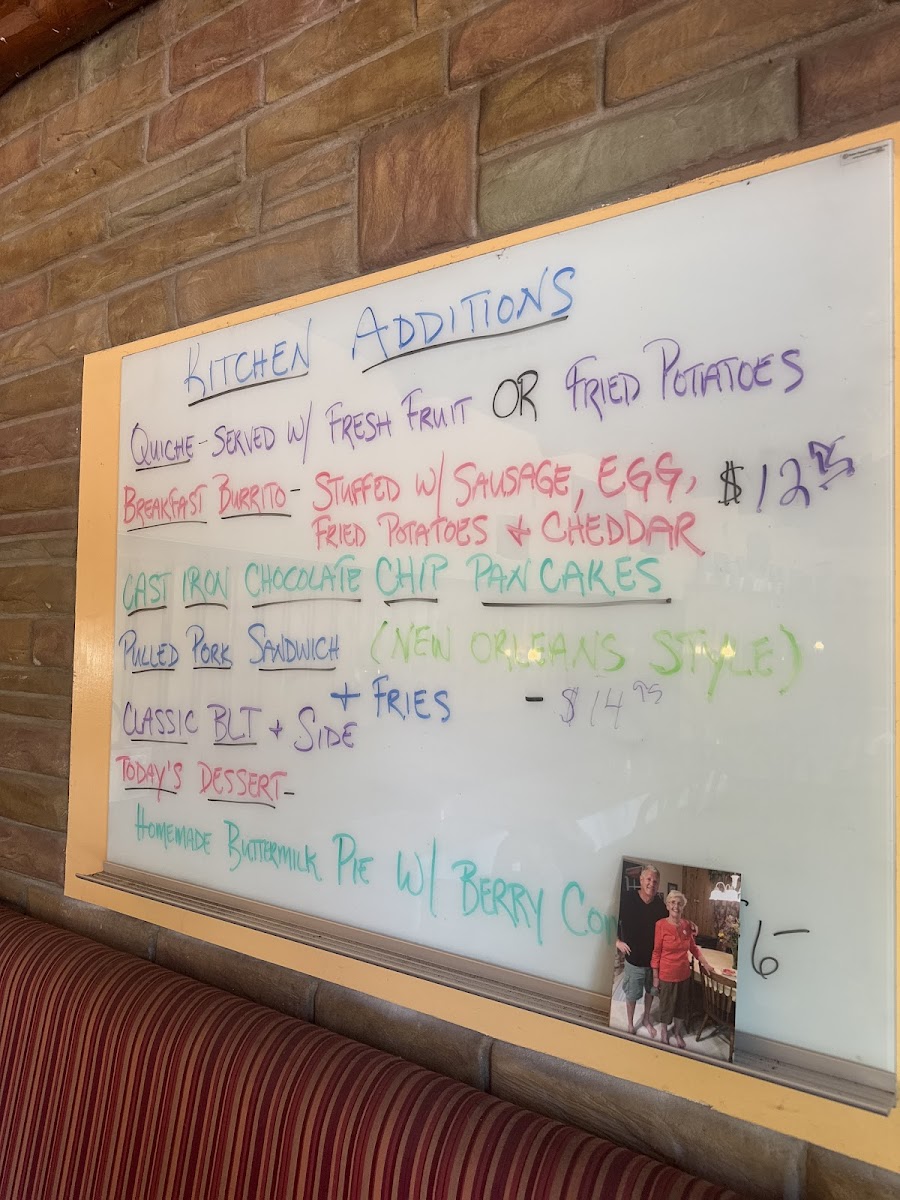 KITCHEN ADDITIONS
QUICHE - SERVED W/ FRESH FRUIT OR FRIED POTATOES
BREAKFAST BURRITO - STUFFED W/ SAUSAGE, EGG, $12.95
FRIED POTATOES + CHEDDAR
CAST IRON CHOCOLATE CHIP PANCAKES
PULLED PORK SANDWICH (NEW ORLEANS STYLE)
+ FRIES - $14.95
CLASSIC BLT + SIDE
TODAY'S DESSERT -
HOMEMADE BUTTERMILK PIE W/ BERRY 6-